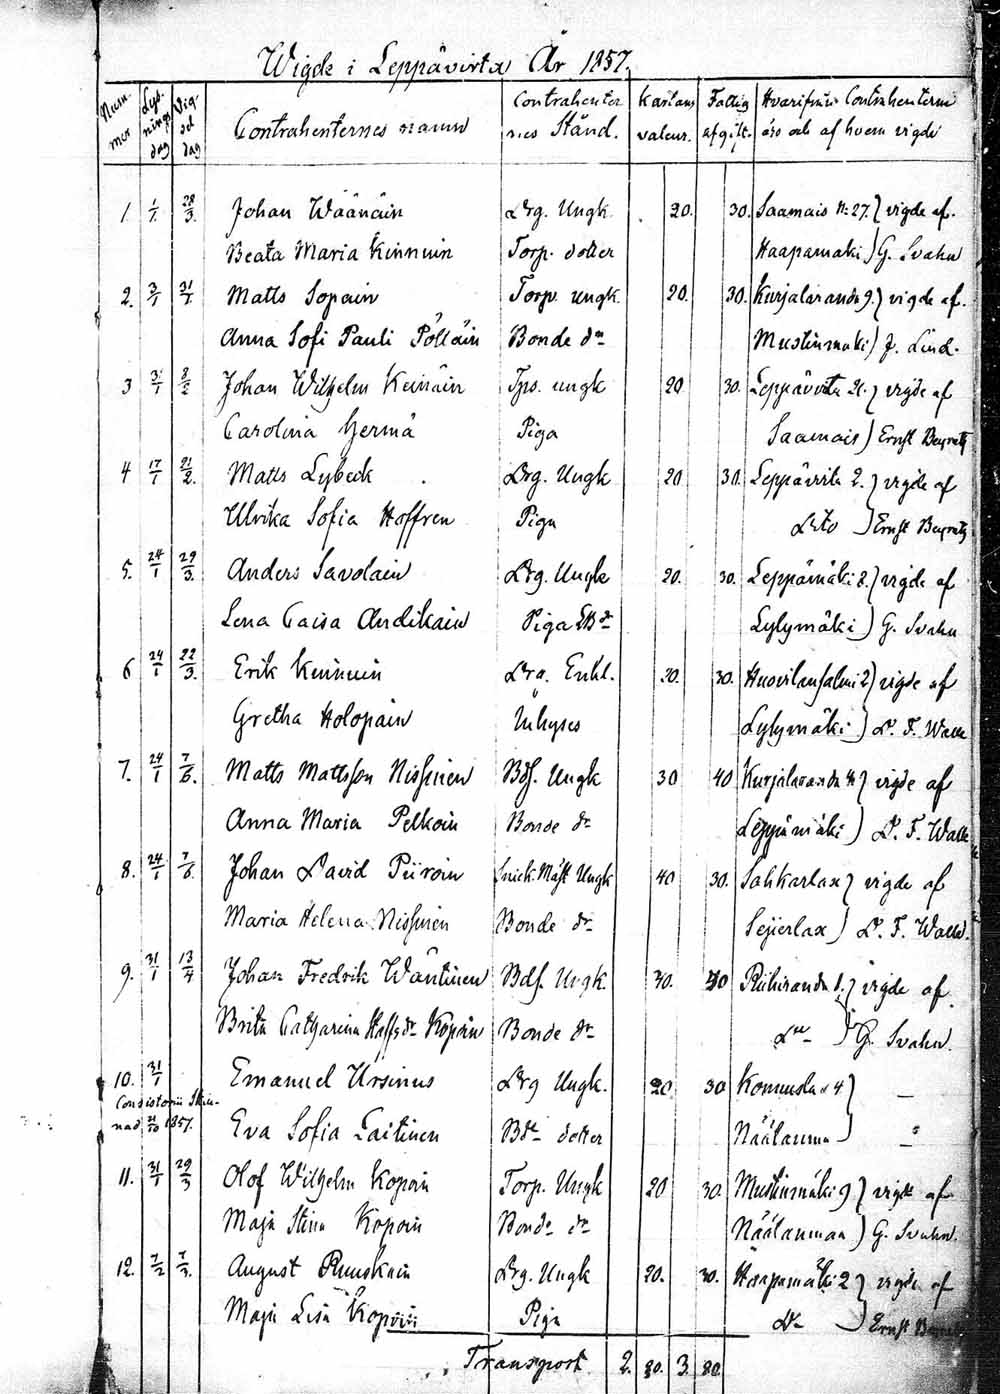 Wigde i Leppävirta År 1857.
Num- mer Lys- nings dag Vig- sel dag Contrahenternes namn Contrahenter nes Stånd. Kartans valeur. Fattig afgift. Hvarifrån Contrahenterne äro och af hvem vigde
1. 1/1. 28/3. Johan Wäänäin Drg. Ungk. 20. 30. Saamais N: 27. ) vigde af.
Beata Maria Kinnuin Torp. dotter Haapamäki ) G. Svahn
2. 3/1 31/1. Matts Sopain Torp. ungk. 20. 30. Kurjalaranda 9. ) vigde af.
Anna Sofi Pauli Pölläin Bonde dr Mustinmäki ) J. Lind.
3 3/1 8/2 Johan Wilhelm Keinäin Tps. ungk 20 30. Leppävirta 21. ) vigde af
Carolina Hermä Piga Saamais ) Ernst
4 17/1 21/2. Matts Lybeck Drg. Ungk 20 30. Leppävirta 2. ) vigde af
Ulrika Sofia Hoffren Piga Dito ) Ernst
5. 24/1 29/3. Anders Savolain Drg. Ungk 20. 30. Leppämäki 8. ) vigde af
Lena Caisa Andikain Piga Lylymäki ) G. Svahn
6 24/1 22/3. Erik Kinnuin Drg. Enkl. 20. 30. Huovilansalmi 2 ) vigde af
Gretha Holopain Inhyses Lylymäki ) D. F. Walle
7. 24/1 7/6. Matts Mattsson Nissinen Bds. Ungk 30 40 Kurjalaranda ) vigde af
Anna Maria Pelkoin Bonde dr Leppämäki ) D. F. Walle
8. 24/1 7/6. Johan David Piiroin Snick. Mäst Ungk 40 30. Sahkarlax ) vigde af
Maria Helena Nissinen Bonde dr Seijerlax ) D. F. Walle.
9. 31/1 13/4 Johan Fredrik Wäntinen Bds. Ungk. 30. 40 Riihiranda 1. ) vigde af
Brita Catharina Staffsdr Kopoin Bonde dr Do ) G. Svahn.
10. 31/1 Emanuel Ursinus Drg Ungk. 20 30 Konnusla 4 ) —
Consistorii
nad 21/10 1857. Eva Sofia Laitinen Bde dotter Näälänma ) "
11. 31/1 29/3 Olof Wilhelm Kopoin Torp. Ungk 20 30. Mustinmäki 9 ) vigde af
Maja Stina Kopoin Bonde dr Näälänmaa ) G. Svahn.
12. 7/2 7/3. August Ruuskain Drg. Ungk 20. 30. Haapamäki 2 ) vigde af
Maja Lisa Kopoin Piga Do ) Ernst
Transport 2. 80. 3. 80.